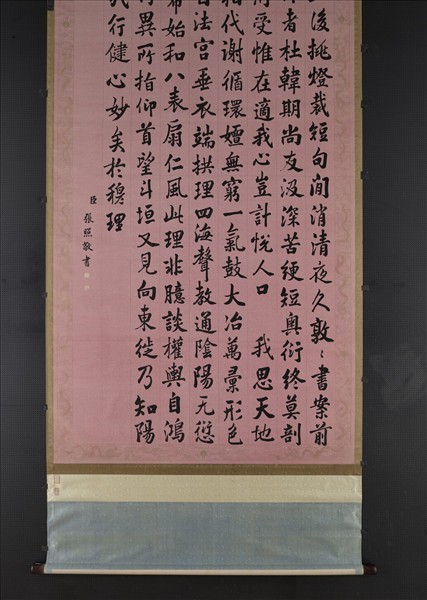 後挑燈裁短句閒消清夜久敦〻書案前
者杜韓期尚友汲深苦綆短奧衍終莫剖
受惟在適我心豈計悅人口 我思天地
代謝循環嬗無窮一氣鼓大冶萬彙形色
法宮垂衣端拱理四海聲教通陰陽无愆
始和八表扇仁風此理非臆談權輿自鴻
異所指仰首望斗垣又見向東徙乃知陽
行健心妙矣於穆理
臣張照敬書